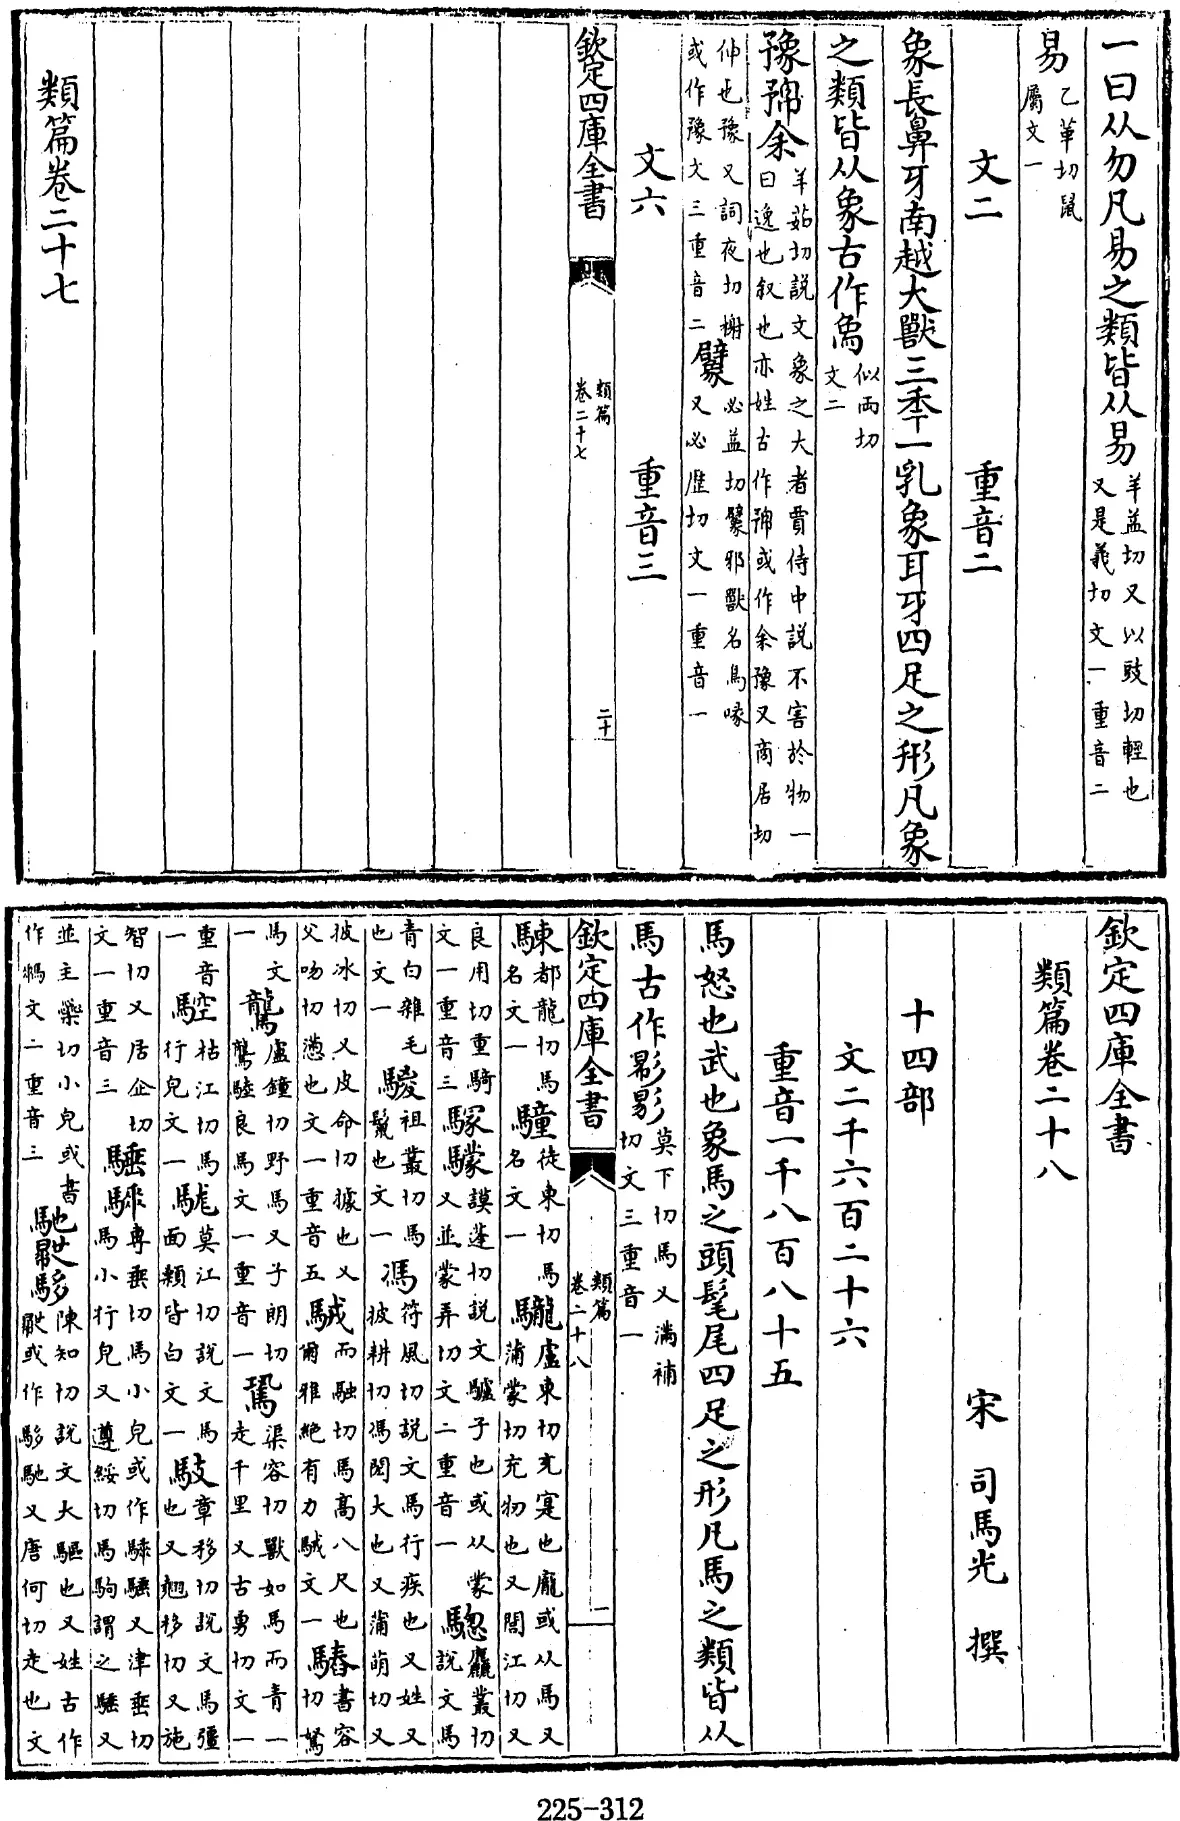 一曰从勿凡易之類皆从易羊益切又以豉切輕也又是義切文一重音二
易乙革切鼠屬文一
文二　重音二
象長鼻牙南越大獸三秊一乳象耳牙四足之形凡象
之類皆从象古作似兩切文二
豫羊茹切説文象之大者賈侍中説不害於物一曰逸也叙也亦姓古作或作豫又商居切
伸也豫又詞夜切榭或作豫文三重音二必益切邪獸名鳥喙又必歷切文一重音一
文六　重音三
欽定四庫全書　類篇卷二十七　二十
類篇卷二十七
欽定四庫全書
類篇卷二十八
宋　司馬光　撰
十四部
文二千六百二十六
重音一千八百八十五
馬怒也武也象馬之頭髦尾四足之形凡馬之類皆从
馬古作莫下切馬又滿補切文三重音一
欽定四庫全書　類篇卷二十八　一
駷都龍切馬名文一䮵徒東切馬名文一驡盧東切充寔也龐或从馬又蒲蒙切充牣也又閭江切又
良用切重騎文一重音三騣驟謨蓬切説文驢子也或从蒙又並蒙弄切文二重音一驄麤叢切説文馬
青白雜毛也文一騣祖叢切馬鬣也文一馮符風切説文馬行疾也又姓又披耕切馮閎大也又蒲萌切又
披冰切又皮命切據也又父吻切懣也文一重音五駥而融切馬高八尺也爾雅絶有力駥文一䮲書容切駑
馬文一驡盧鐘切野馬又子朗切驡䮚良馬文一重音一䮗渠容切獸如馬而青一走千里又古勇切文一
重音一䮤枯江切馬行皃文一駹莫江切説文馬面顙皆白文一䭷章移切説文馬彊也又翹移切又施
智切又居企切文一重音三䮔專垂切馬小皃或作又津垂切馬小行皃又遵綏切馬駒謂之又
並主橤切小皃或書作文二重音三馳陳知切説文大驅也又姓古作或作馳又唐何切走也文
225-312